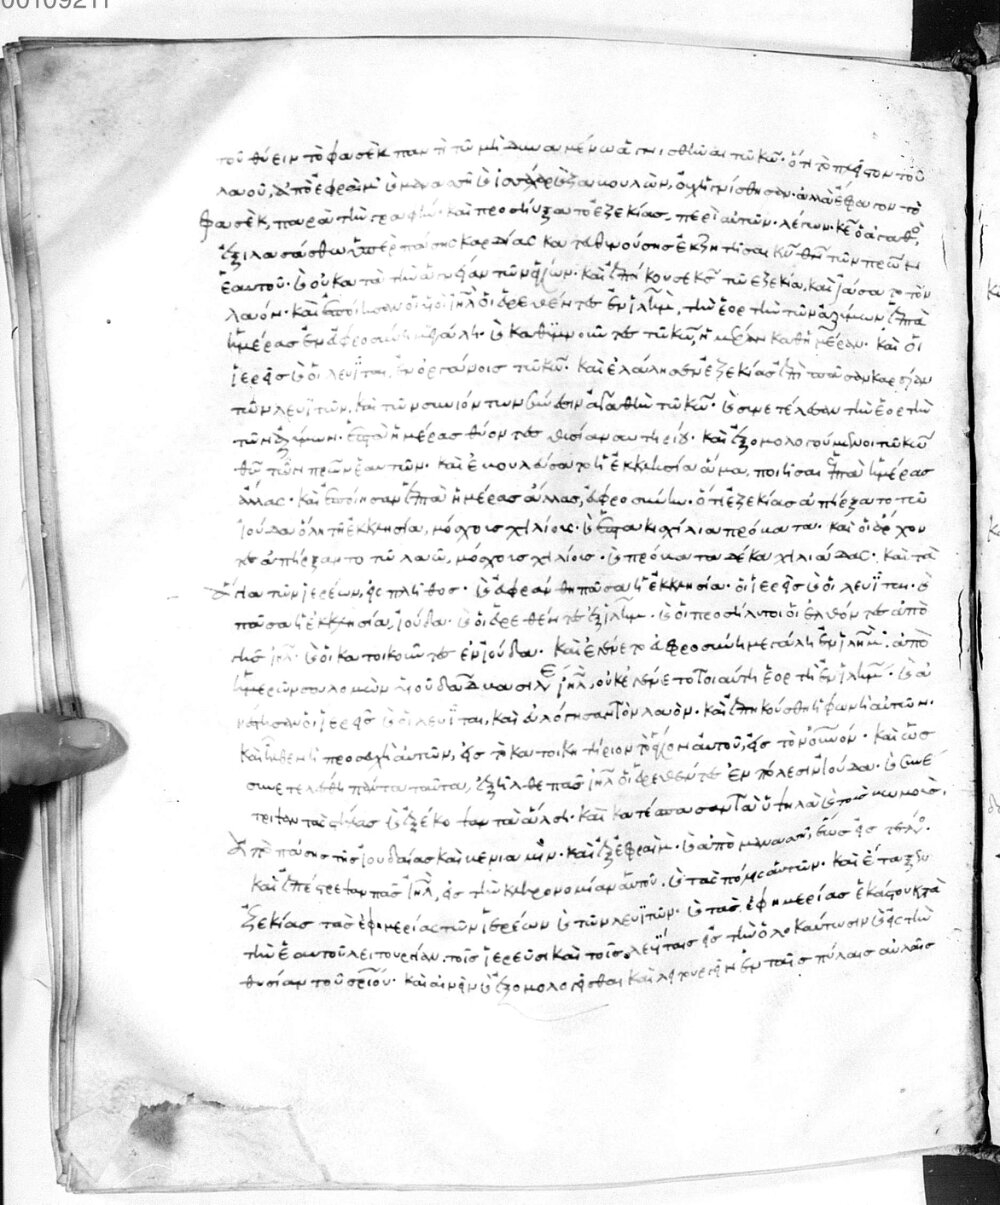 00109211
τοῦ θύειν τὸ φασὲκ παντὶ τῶ μὴ δυναμένω ἁγνισθῆναι τῶ κω̅· ὅτι τὸ πλεῖστον τοῦ
λαοῦ, ἀπὸ ἐφραὶμ καὶ μανασσῆ καὶ ἰσσάχαρ καὶ ζαβουλὼν, οὐχ ἡγνίσθησαν· ἀλλὰ ἔφαγον τὸ
φασὲκ, παρὰ τὴν γραφήν· καὶ προσηύξατο ἐξεκίας περὶ αὐτῶν λέγων· κς̅ ὁ ἀγαθὸς
ἐξιλασάσθω ὑπὲρ πάσης καρδίας κατευθυνούσης ἐκζητῆσαι κν̅ θν̅ τῶν πρων̅
ἑαυτοῦ· καὶ οὐ κατὰ τὴν ἁγνείαν τῶν ἁγίων· καὶ ἐπήκουσε κς̅ τῶ ἐξεκία, καὶ ἰάσατο τὸν
λαόν· καὶ ἐποίησαν οἱ υἱοὶ ιηλ̅ οἱ εὑρεθέντες ἐν ιλημ̅, τὴν ἑορτὴν τῶν ἀζύμων ἑπτὰ
ἡμέρας ἐν εὐφροσύνη μεγάλη· καὶ καθυμνοῦντες τῶ κω̅, ἡμέραν καθ' ἡμέραν· καὶ οἱ
ἱερεῖς καὶ οἱ λευῖται, ἐν ὀργάνοις τῶ κω̅· καὶ ἐλάλησεν ἐξεκίας ἐπὶ πᾶσαν καρδίαν
τῶν λευϊτῶν, καὶ τῶν συνιόντων σύνεσιν ἀγαθὴν τῶ κω̅· καὶ συνετέλεσαν τὴν ἑορτὴν
τῶν ἀζύμων· ἑπτὰ ἡμέρας θύοντες θυσίαν σωτηρίου· καὶ ἐξομολογούμενοι τῶ κω̅
θω̅ τῶν πρων̅ ἑαυτῶν· καὶ ἐβουλεύσατο ἡ ἐκκλησία ἅμα, ποιῆσαι ἑπτὰ ἡμέρας
ἄλλας· καὶ ἐποίησαν ἑπτὰ ἡμέρας ἄλλας, εὐφροσύνην· ὅτι ἐξεκίας ἀπήρξατο τῶ
ἰούδα ὅλη τῆ ἐκκλησία, μόσχους χιλίους· καὶ ἑπτακισχίλια πρόβατα· καὶ οἱ ἄρχον
τες ἀπήρξαντο τῶ λαῶ, μόσχους χιλίους· καὶ πρόβατα δέκα χιλιάδας· καὶ τὰ
ἅγια τῶν ἱερέων, εἰς πλῆθος· καὶ εὐφράνθη πᾶσα ἡ ἐκκλησία· οἱ ἱερεῖς καὶ οἱ λευῖται· καὶ
πᾶσα ἡ ἐκκλησία ἰούδα· καὶ οἱ εὑρεθέντες ἐξ ιλημ̅· καὶ οἱ προσήλυτοι οἱ ἐλθόντες ἀπὸ
γῆς ιηλ̅· καὶ οἱ κατοικοῦντες ἐν ἰούδα· καὶ ἐγένετο εὐφροσύνη μεγάλη ἐν ιλημ̅· ἀπὸ
ἡμερῶν σολομὼν υἱοῦ δαδ̅ βασιλέως ιηλ̅, οὐκ ἐγένετο τοιαύτη ἑορτὴ ἐν ιλημ̅· καὶ ἀ
νέστησαν οἱ ἱερεῖς καὶ οἱ λευῖται, καὶ εὐλόγησαν τὸν λαόν· καὶ ἐπηκούσθη ἡ φωνὴ αὐτῶν·
καὶ ἦλθεν ἡ προσευχὴ αὐτῶν, εἰς τὸ κατοικητήριον τὸ ἅγιον αὐτοῦ, εἰς τὸν οὐνον̅· καὶ ὡς
συνετελέσθη πάντα ταῦτα, ἐξῆλθε πᾶς ιηλ̅ οἱ εὑρεθέντες ἐν πόλεσιν ἰούδα· καὶ συνέ
τριψαν τὰς στήλας καὶ ἐξέκοψαν τὰ ἄλση· καὶ κατέσπασαν τὰ ὑψηλὰ καὶ τοὺς βωμοὺς,
ἀπὸ πάσης τῆς ἰουδαίας καὶ βενιαμίν· καὶ ἐξ ἐφραίμ· καὶ ἀπὸ μανασσῆ, ἕως εἰς τέλος·
καὶ ἐπέστρεψαν πᾶς ιηλ̅, εἰς τὴν κληρονομίαν αὐτοῦ· καὶ τὰς πόλεις αὐτῶν· καὶ ἔταξεν
ἐξεκίας τὰς ἐφημερίας τῶν ἱερέων καὶ τῶν λευϊτῶν· καὶ τὰς ἐφημερίας ἑκάστου κατὰ
τὴν ἑαυτοῦ λειτουργίαν· τοῖς ἱερεῦσι καὶ τοῖς λευΐταις εἰς τὴν ὁλοκαύτωσιν καὶ εἰς τὴν
θυσίαν τοῦ σωτηρίου· καὶ αἰνεῖν καὶ ἐξομολογεῖσθαι καὶ λειτουργεῖν ἐν ταῖς πύλαις αὐλαῖς